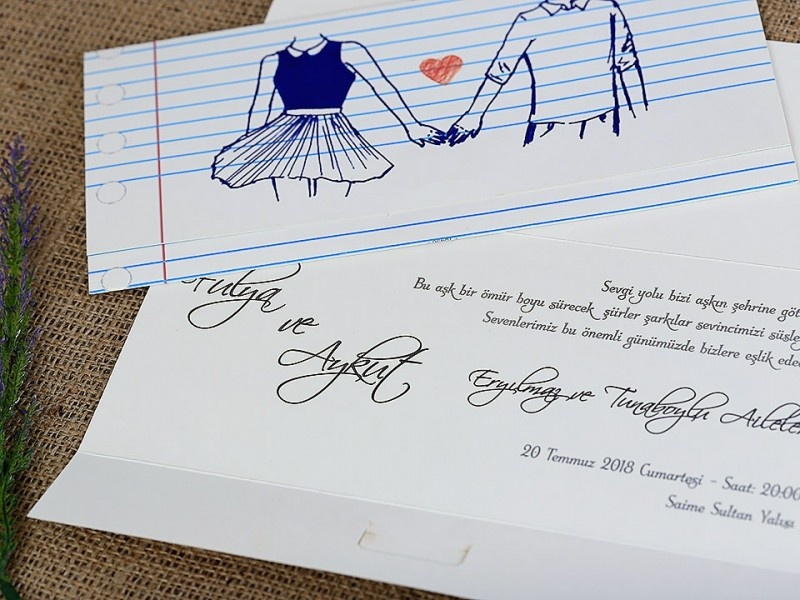 Hulya
ve
Aykut
Sevgi yolu bizi aşkın şehrine
Bu aşk bir ömür boyu sürecek şiirler şarkılar sevincimizi
Sevenlerimiz bu önemli günümüzde bizlere eşlik
Eryılmaz ve Tunaboylu
20 Temmuz 2018 Cumartesi - Saat: 20:00
Saime Sultan Yalısı